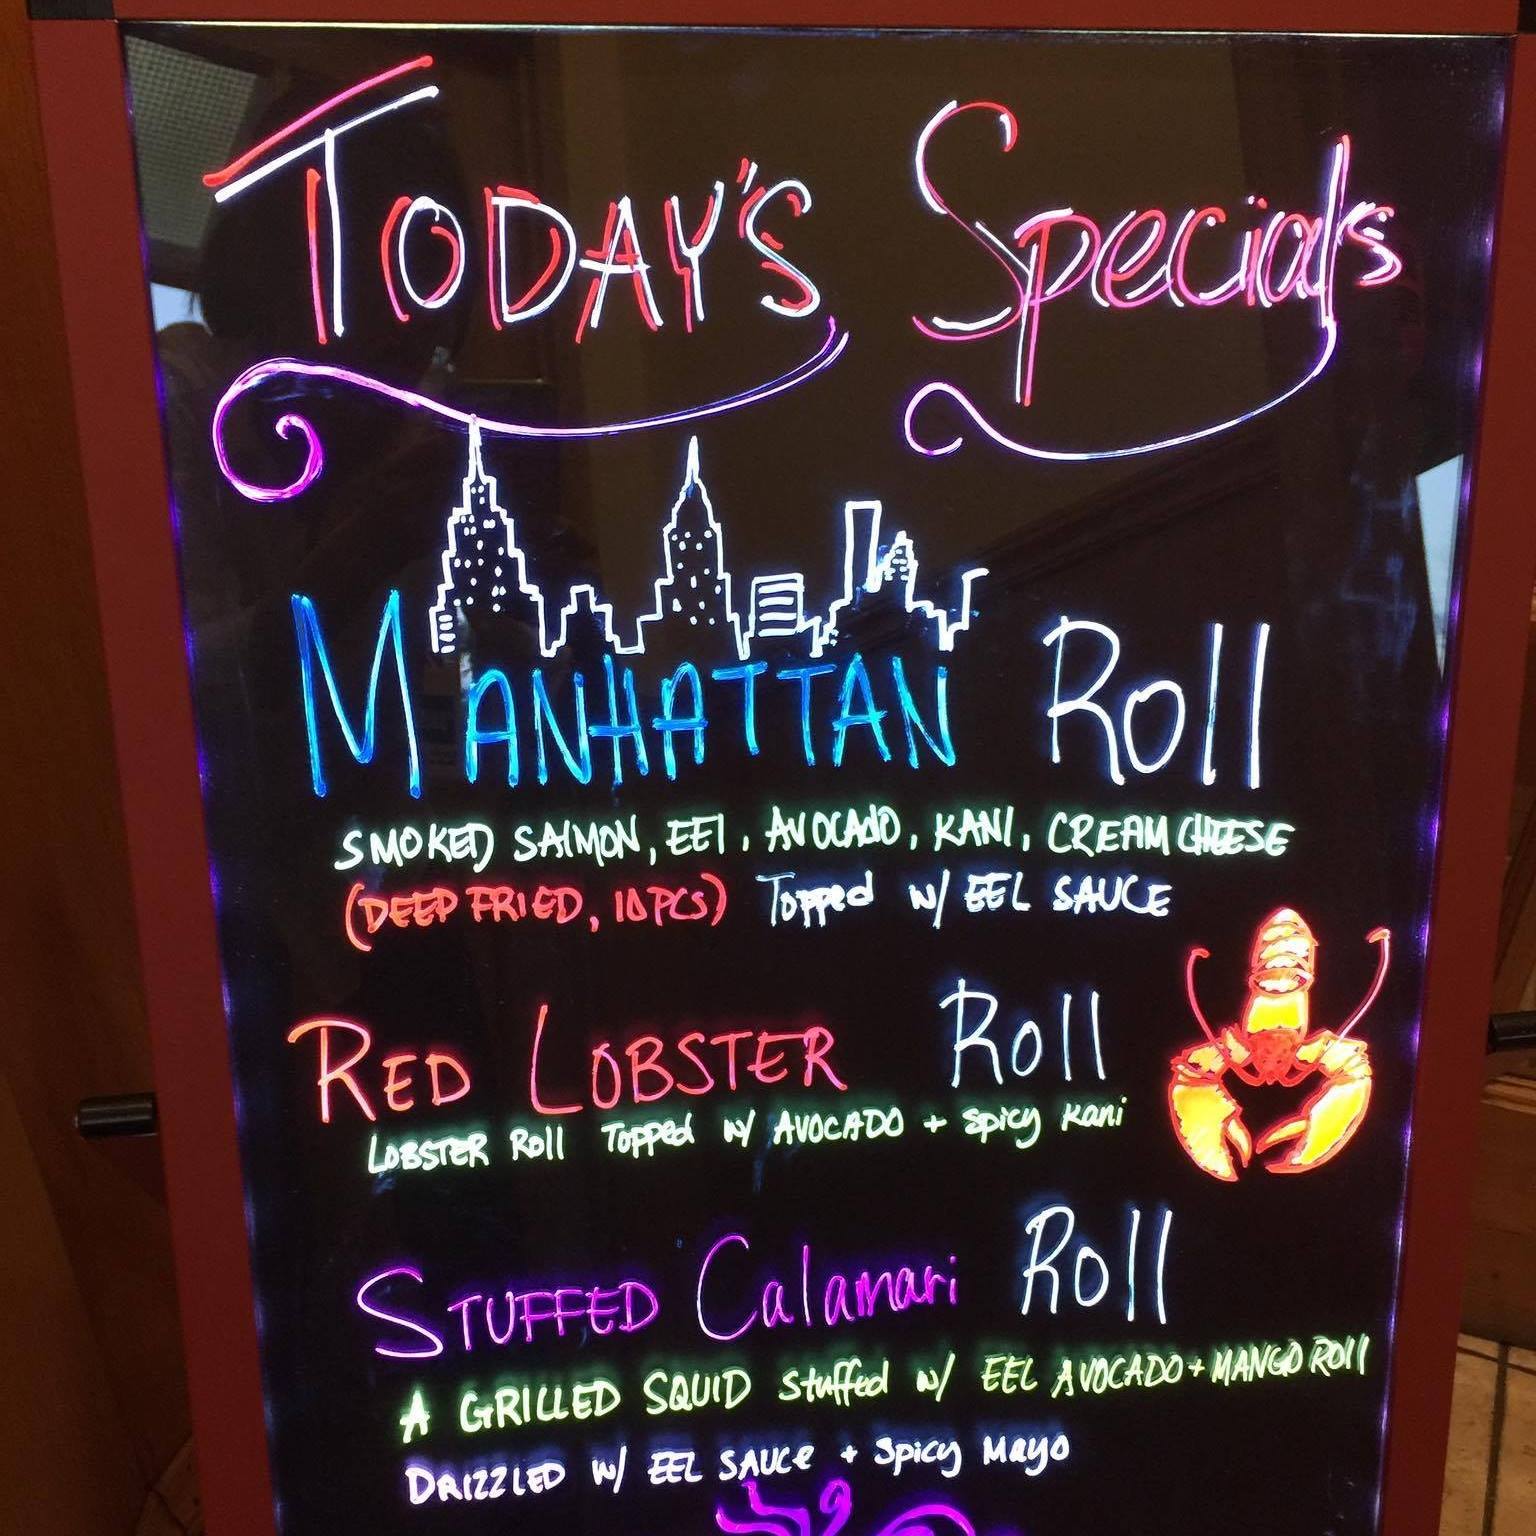 TODAY'S Specials
MANHATTAN Roll
SMOKED SALMON, EEl, AVOCADO, KANI, CREAM CHEESE
(DEEP FRIED, 10PCS) Topped w/ EEL SAUCE
RED LOBSTER Roll
LOBSTER Roll Topped w/ AVOCADO + Spicy Kani
STUFFED Calamari Roll
A GRILLED SQUID Stuffed w/ EEL AVOCADO + MANGO ROll
DRIZZLED w/ EEL SAUCE + Spicy Mayo